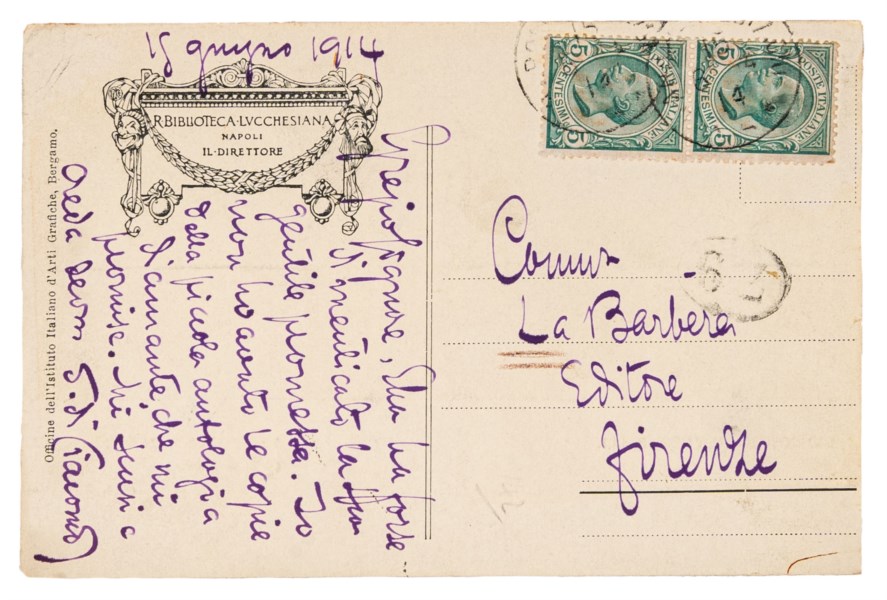 15 giugno 1914
R. BIBLIOTECA·LVCCHESIANA
NAPOLI
IL·DIRETTORE
Officine dell'Istituto Italiano d'Arti Grafiche, Bergamo.
Pregio Signore, Ella ha forse
dimenticato la Sua
gentile promessa. Io
non ho avuto le copie
della piccola antologia
diamante che mi
promise. Mi scusi e
creda devmo S. di Giacomo
POSTE ITALIANE
CENTESIMI 5
5
POSTE ITALIANE
CENTESIMI 5
5
Comm
La Barbera
Editore
Firenze